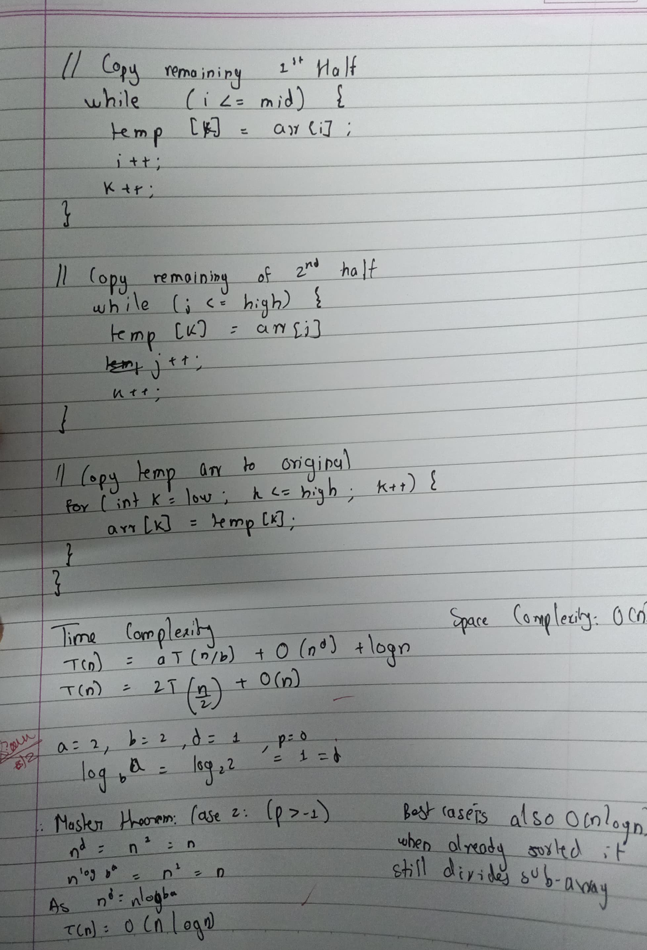 // Copy remaining 1st Half
while (i <= mid) {
temp [k] = arr [i] ;
i ++ ;
k ++ ;
}
// Copy remaining of 2nd half
while (j <= high) {
temp [k] = arr [j]
j ++ ;
k ++ ;
}
// Copy temp arr to original
for (int k = low ; k <= high ; k++) {
arr [k] = temp [k] ;
}
}
Time Complexity
Space Complexity: O(n
T(n) = aT (n/b) + O (n^d) + logn
T(n) = 2T (n/2) + O(n)
a = 2, b = 2, d = 1, p=0
log_b a = log_2 2 = 1 = d
∴ Master theorem: Case 2: (p > -1)
n^d = n^1 = n
n^log_b a = n^1 = n
As n^d = n^log_b a
T(n) = O (n logn)
Best case is also O(n logn)
when already sorted it
still divides sub-array